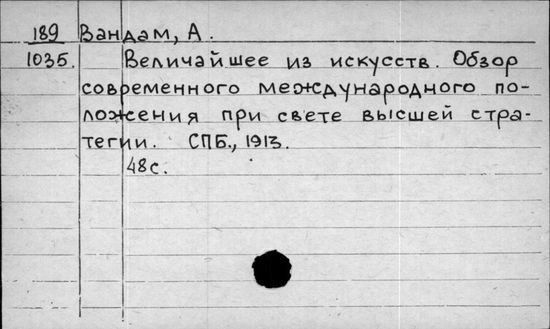 189 Вандам, А.
1035. Величайшее из искусств. Обзор
современного международного по-
ложения при свете высшей стра-
тегии. СПБ., 1913.
48с.